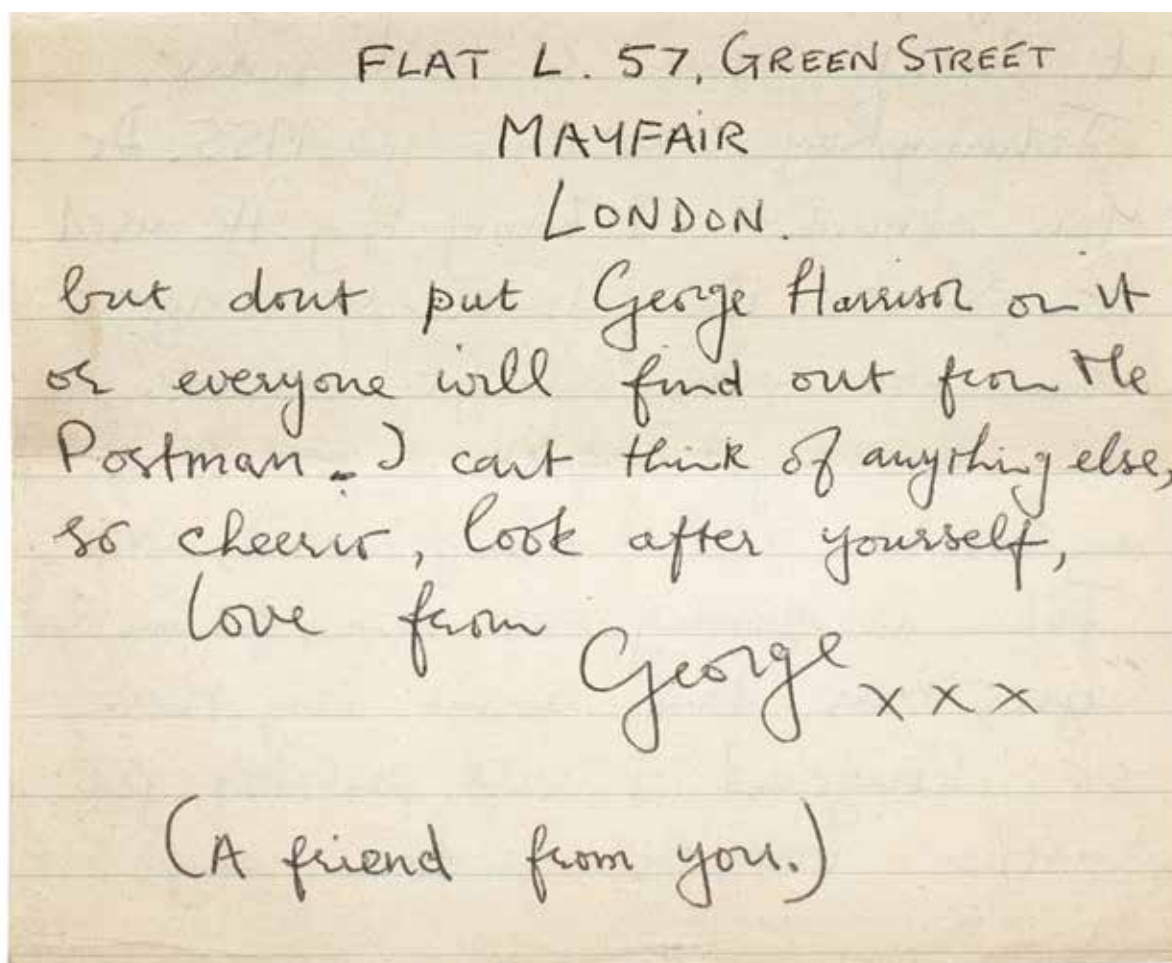 FLAT L. 57, GREEN STREET
MAYFAIR
LONDON.
but dont put George Harrison on it
or everyone will find out from the
Postman. I cant think of anything else,
so cheerio, look after yourself,
love from
George xxx
(A friend from you.)